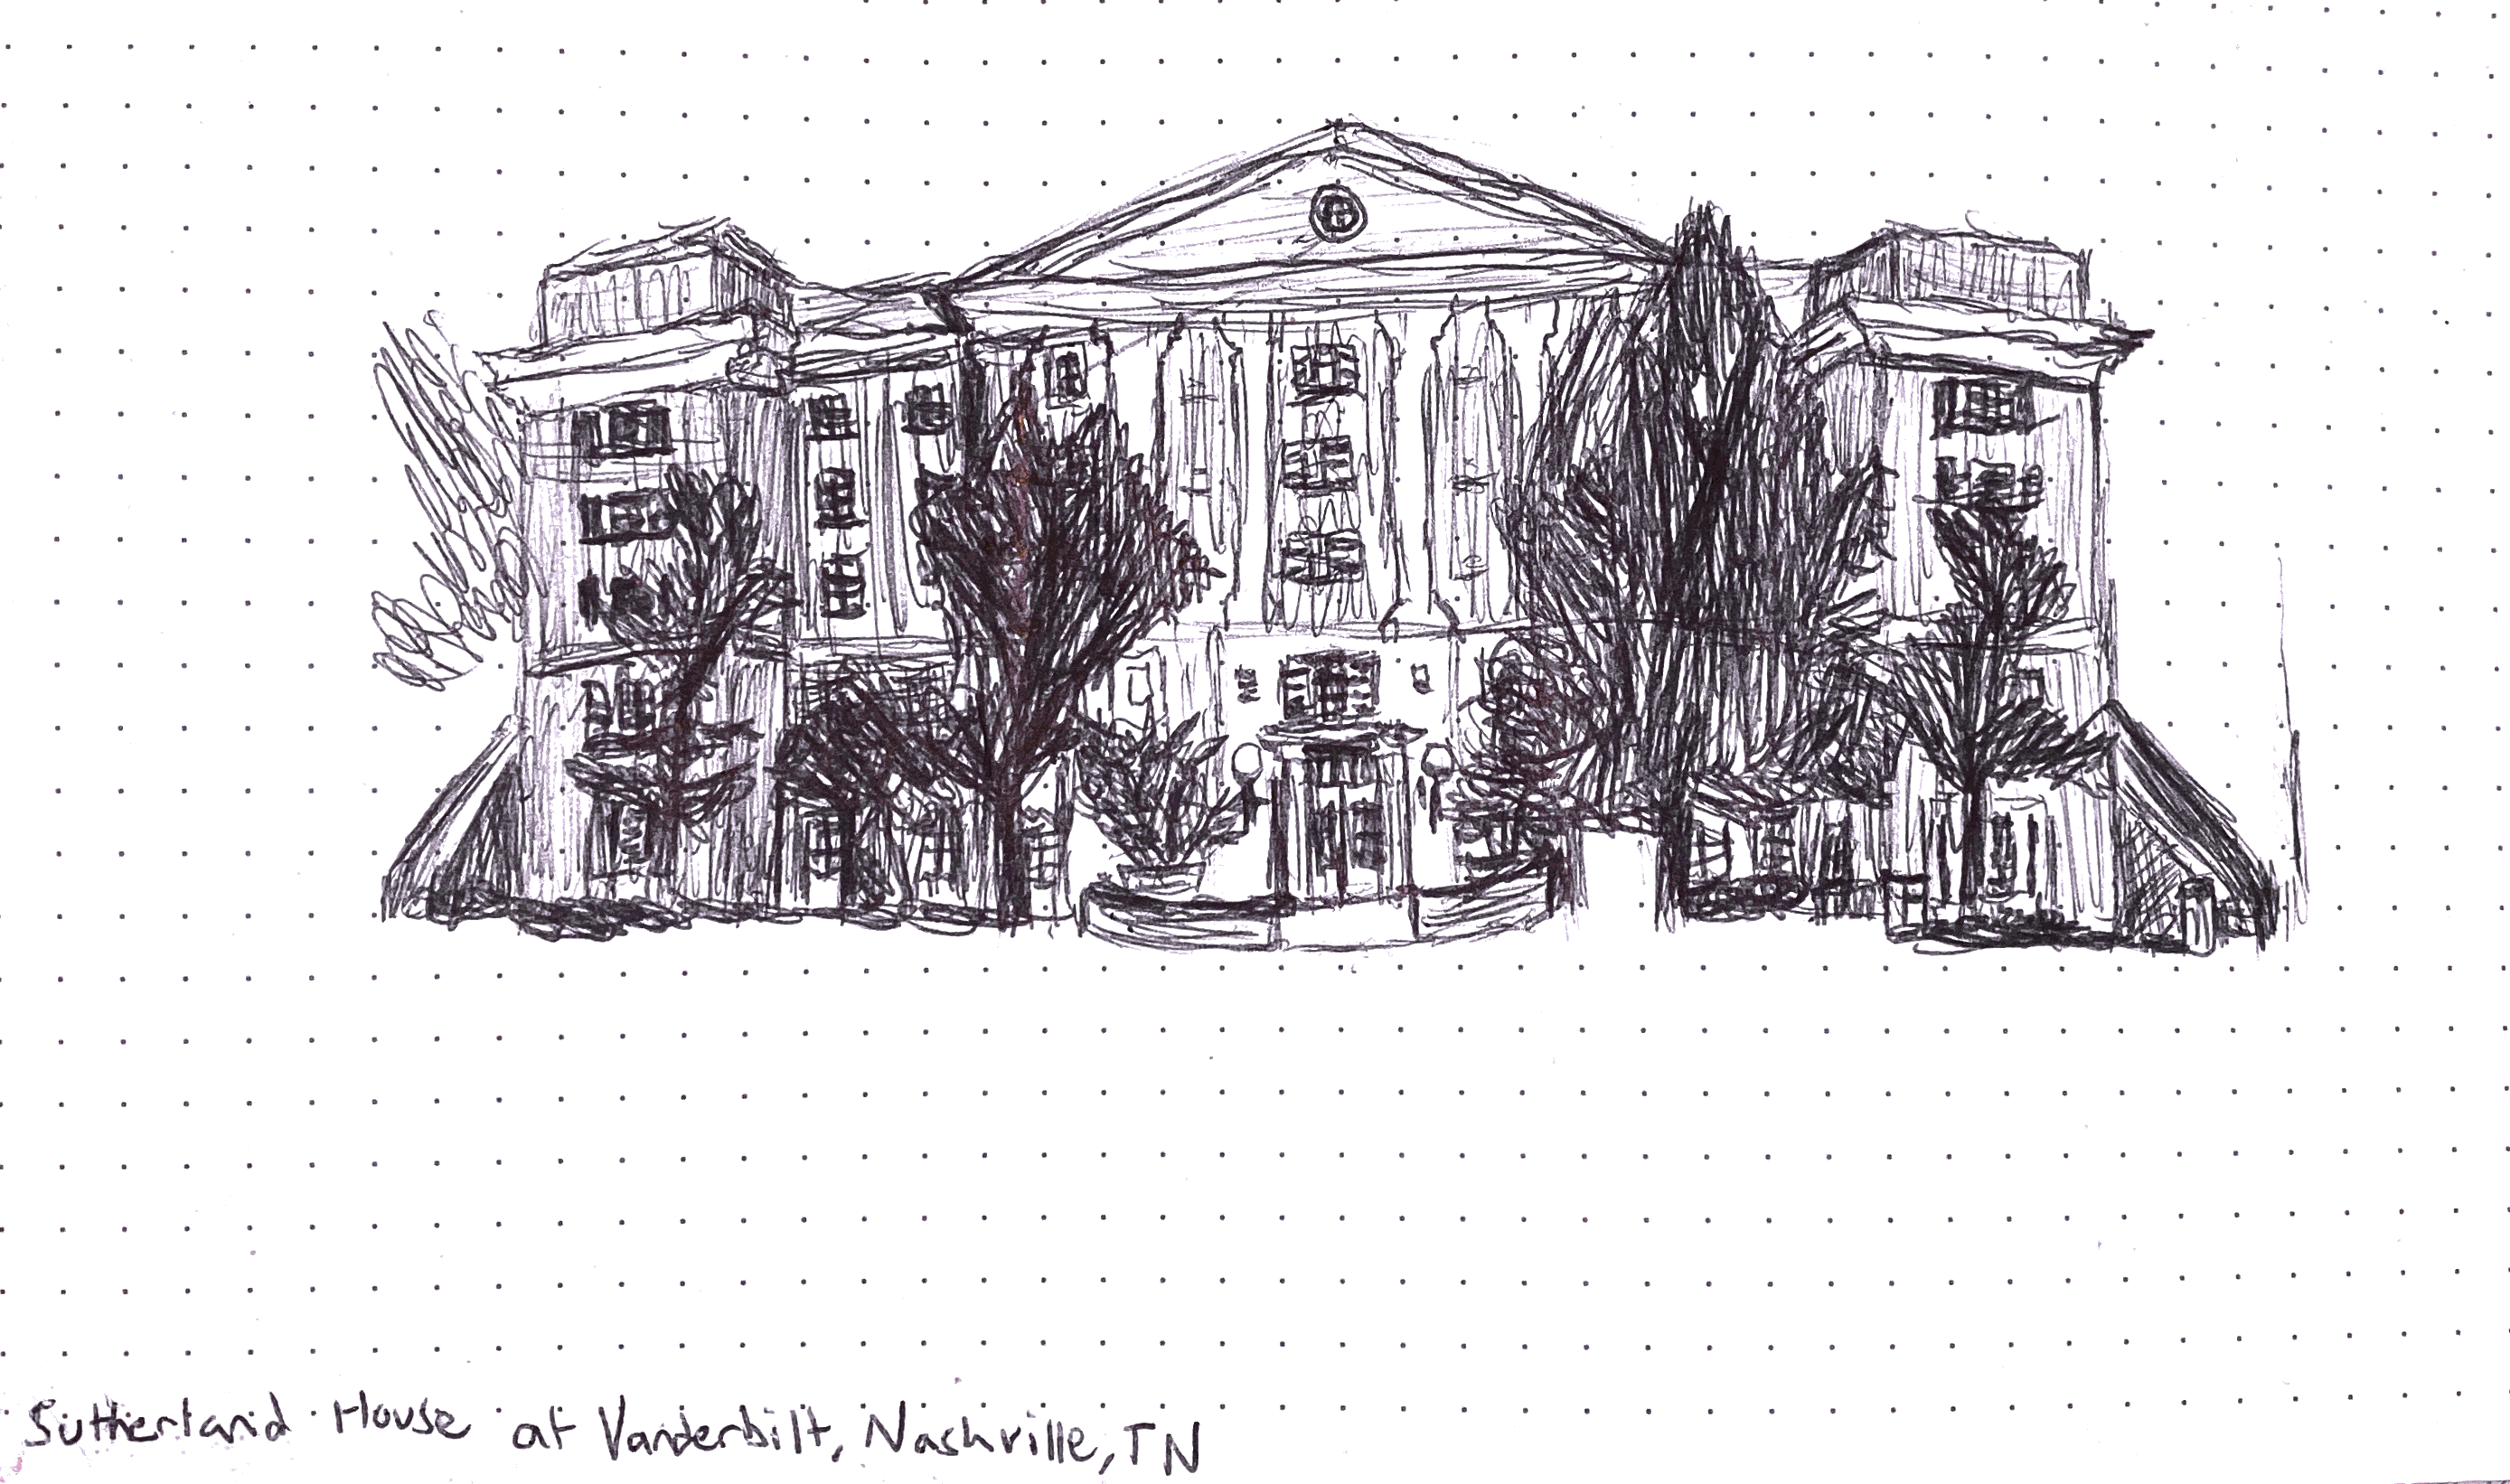 Sutherland House at Vanderbilt, Nashville, TN